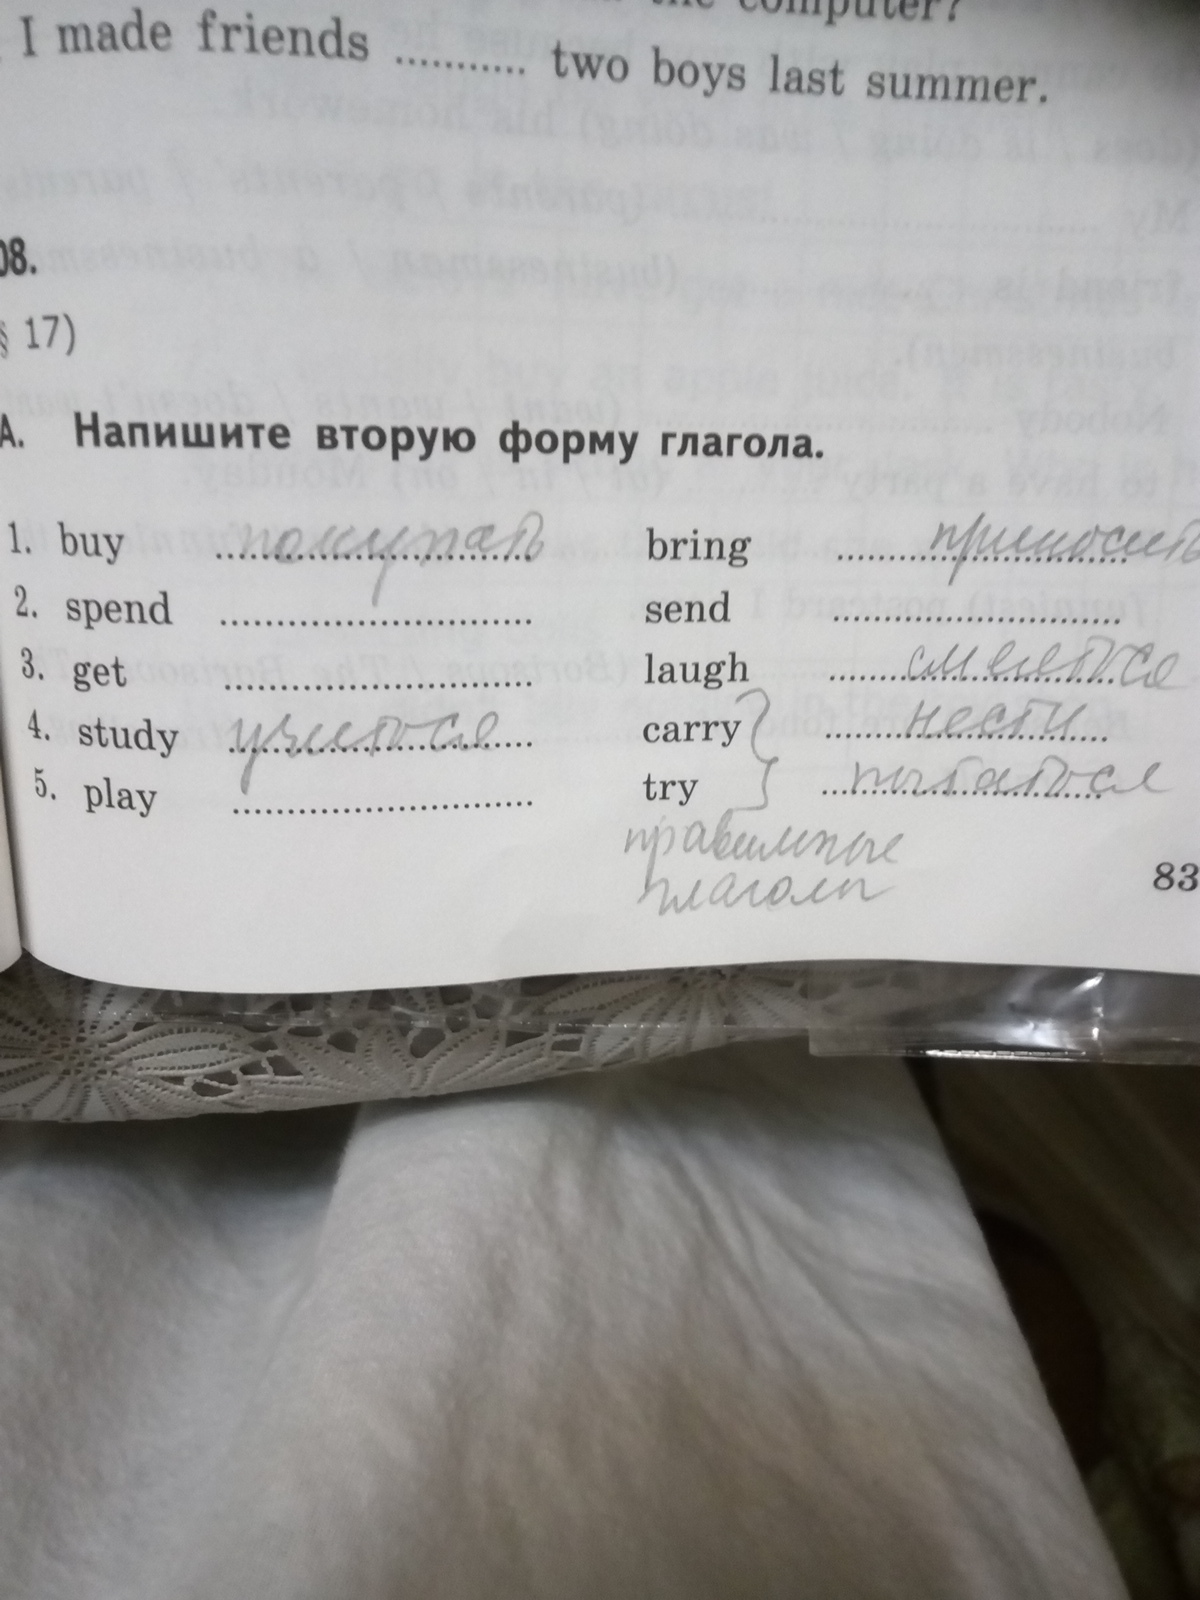 the computer?
I made friends ........... two boys last summer.
08.
§ 17)
А. Напишите вторую форму глагола.
1. buy покупать bring приносить
2. spend ............................ send ..........................
3. get ............................ laugh смеяться
4. study учиться carry нести
5. play ............................ try пытаться
правильные
глаголы
83